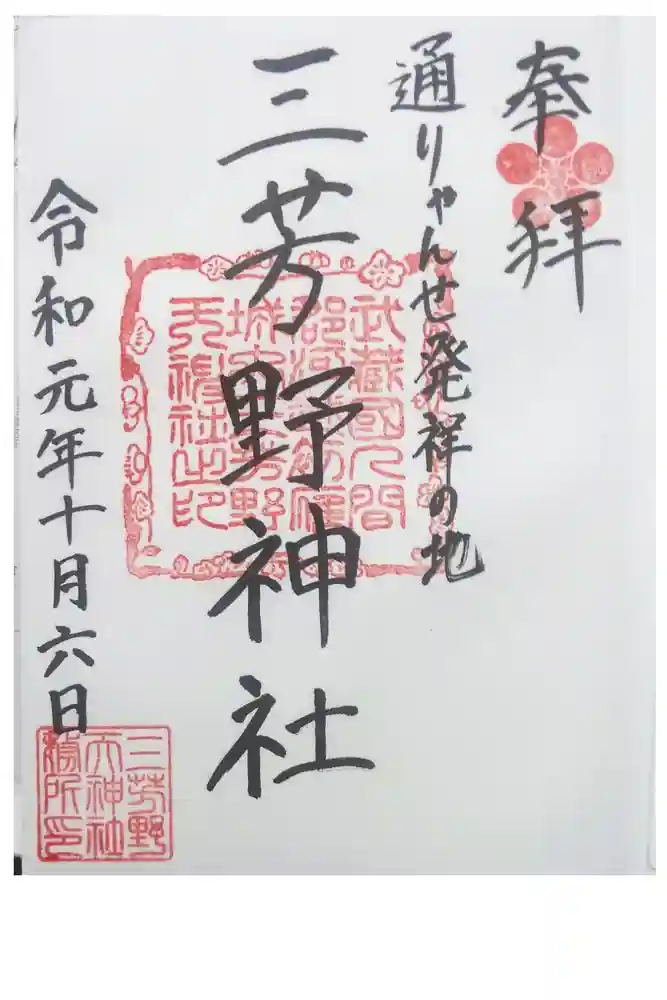 奉拝
通りゃんせ発祥の地
三芳野神社
令和元年十月六日
武蔵國入間
郡河越初雁
城内三芳野
天神社之印
三芳野
大神社
務所印